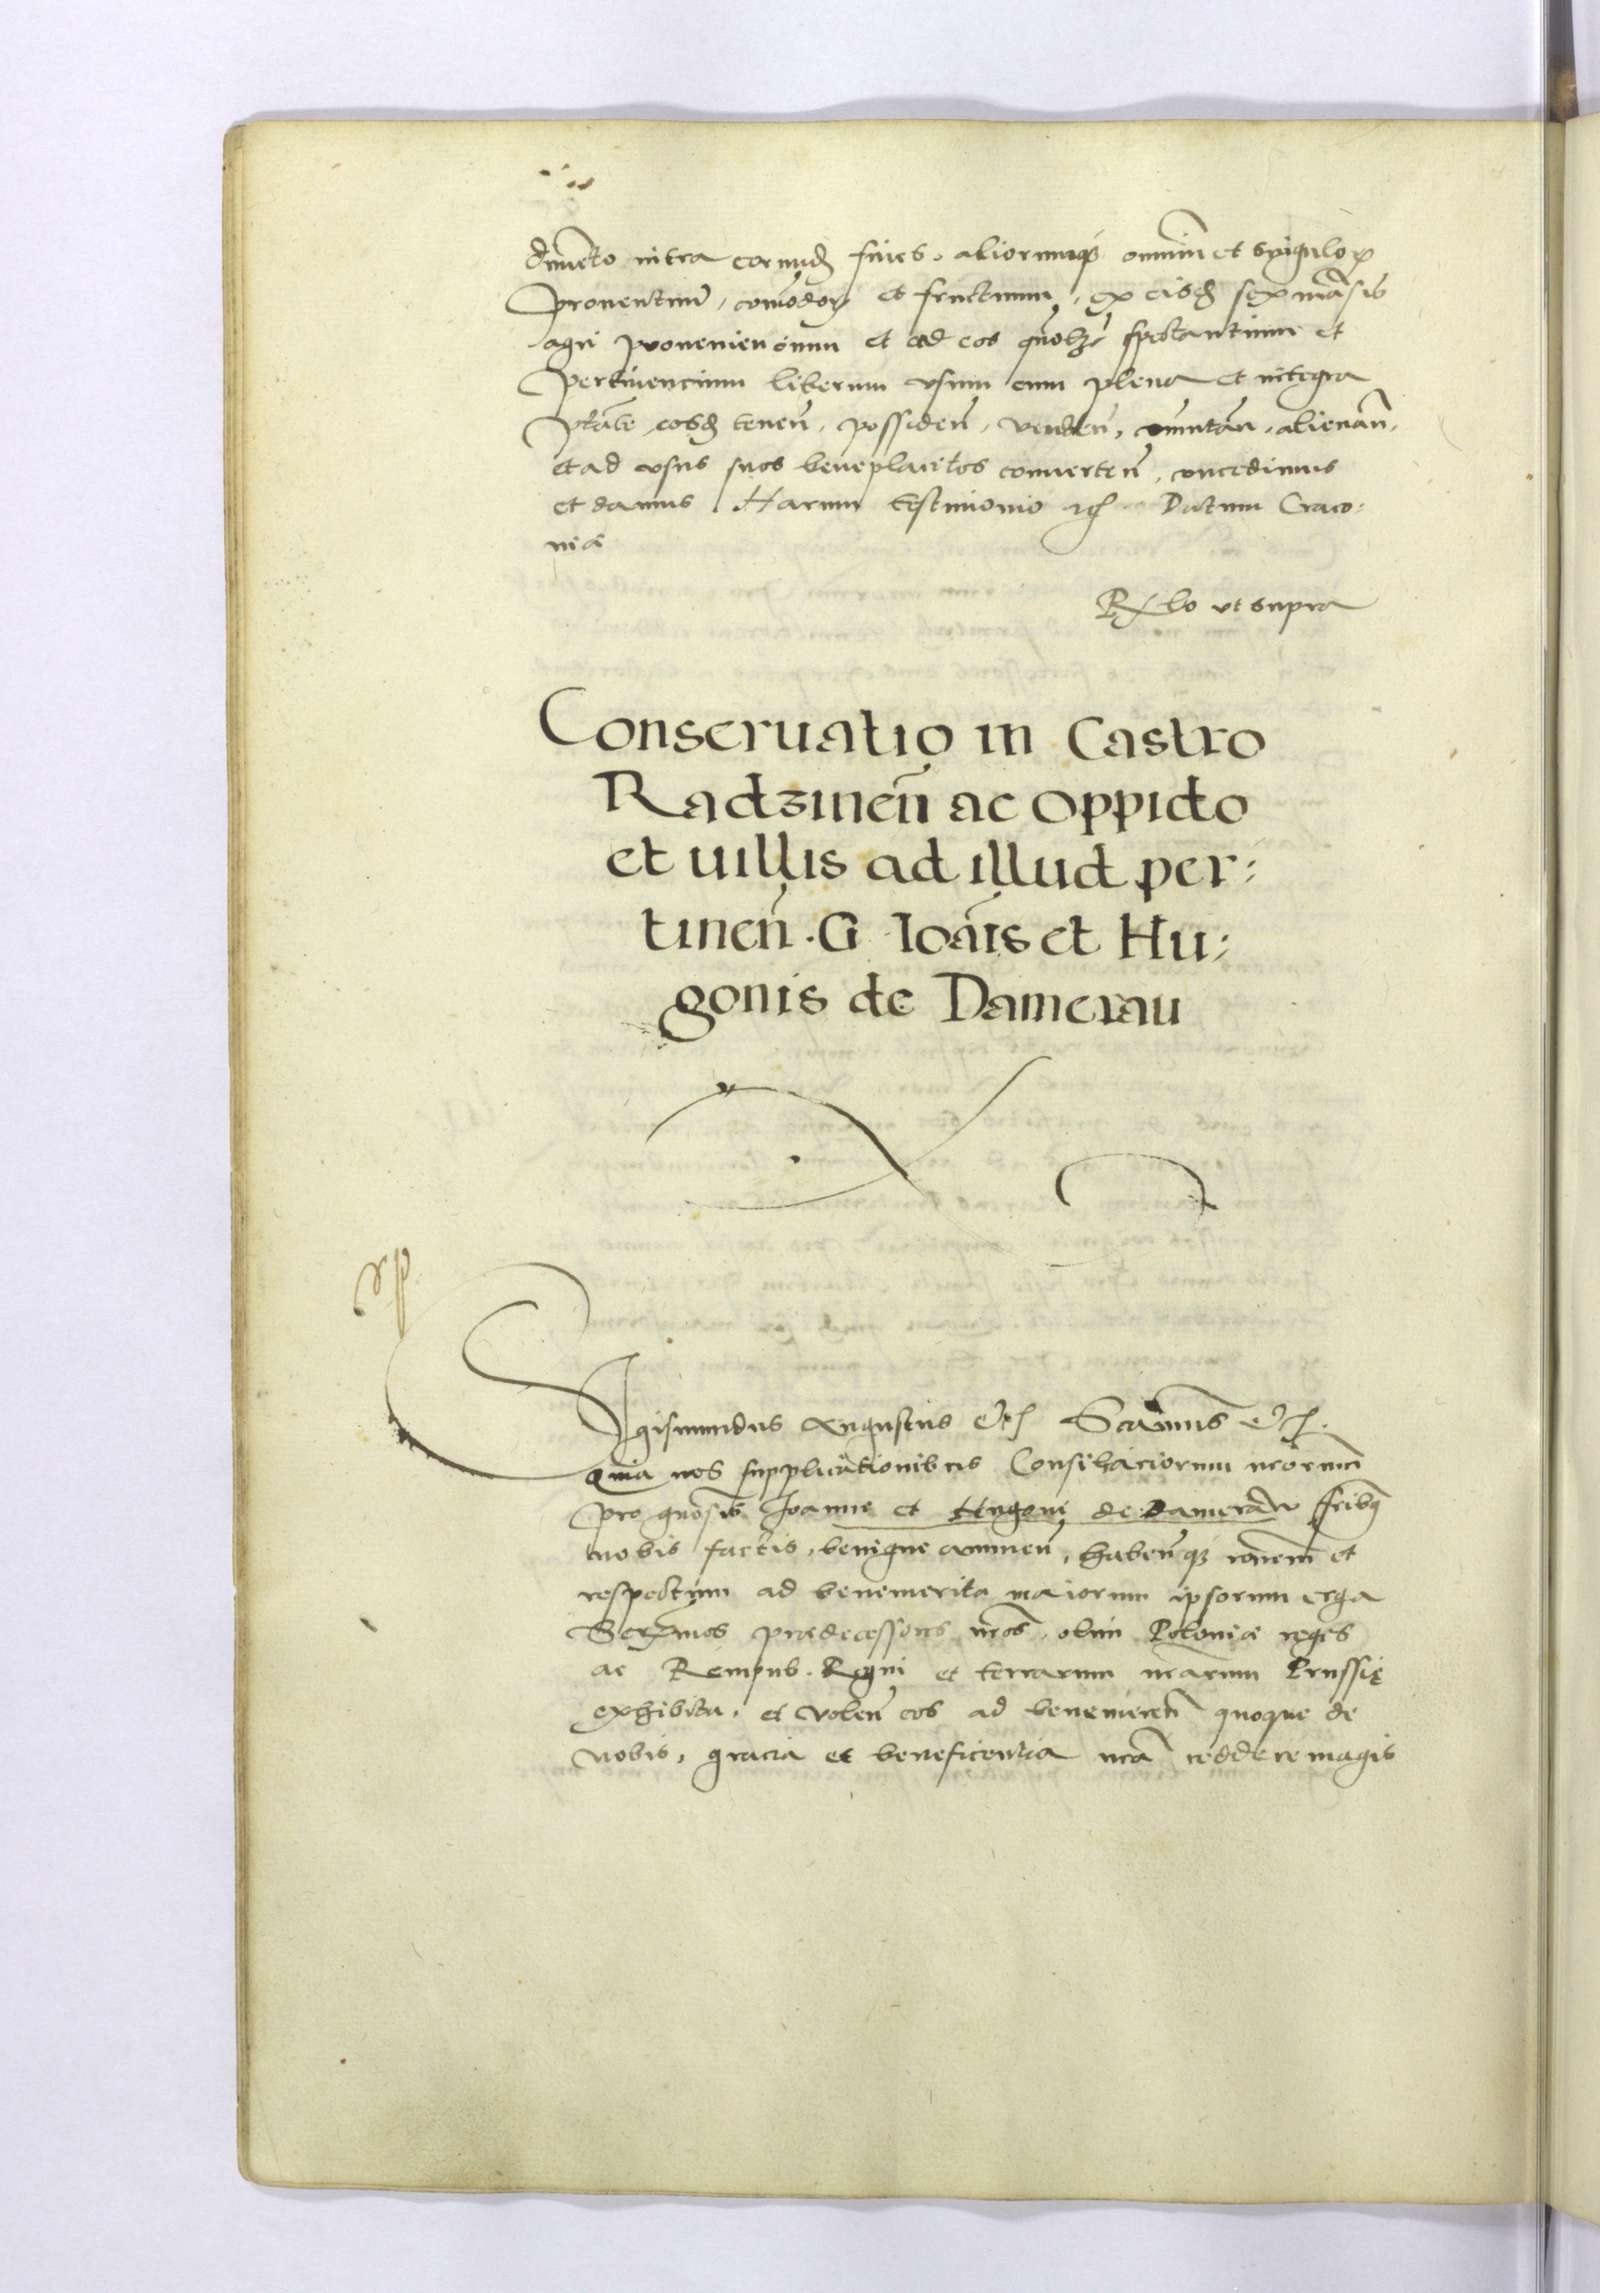 intra eorund fines, aliorumq omnium et singulor
prouentuum, comodor et fructuum, ex eisd sex mansis
agri proueniencium et ad eos quolz spectantium et
pertinencium liberum vsum cum plena et integra
ptate eosd tenen, possiden, venden, alienan,
et ad vsus suos beneplacitos conuerten, concedimus
et damus. Harum testimonio etc Datum Craco:
uiæ
Rlo vt supra
Conseruatio in Castro
Radzinen ac oppido
et uillis ad illud per:
tinen .G. Ioanis et Hu:
gonis de Damerau
Sigismundus Augustus etc Significamus etc.
quia nos supplicationibus Consiliariorum nrorum
pro gnosis Joanne et Hugoni de Dameraw fribq
nobis factis, benigne annuen, habenq ronem et
respectum ad benemerita maiorum ipsorum erga
Sermos prædecessores nros, olim Poloniæ reges
ac Rempub. Regni et terrarum nrarum Prussię
exhibita, et volen eos ad benemeren quoque de
nobis, gracia et beneficentia nra reddere magis